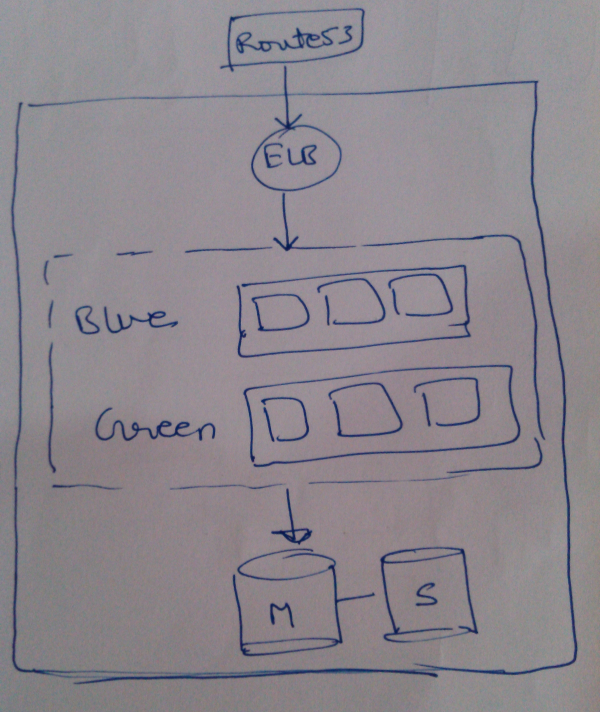 Route53
ELB
Blue
Green
M
S